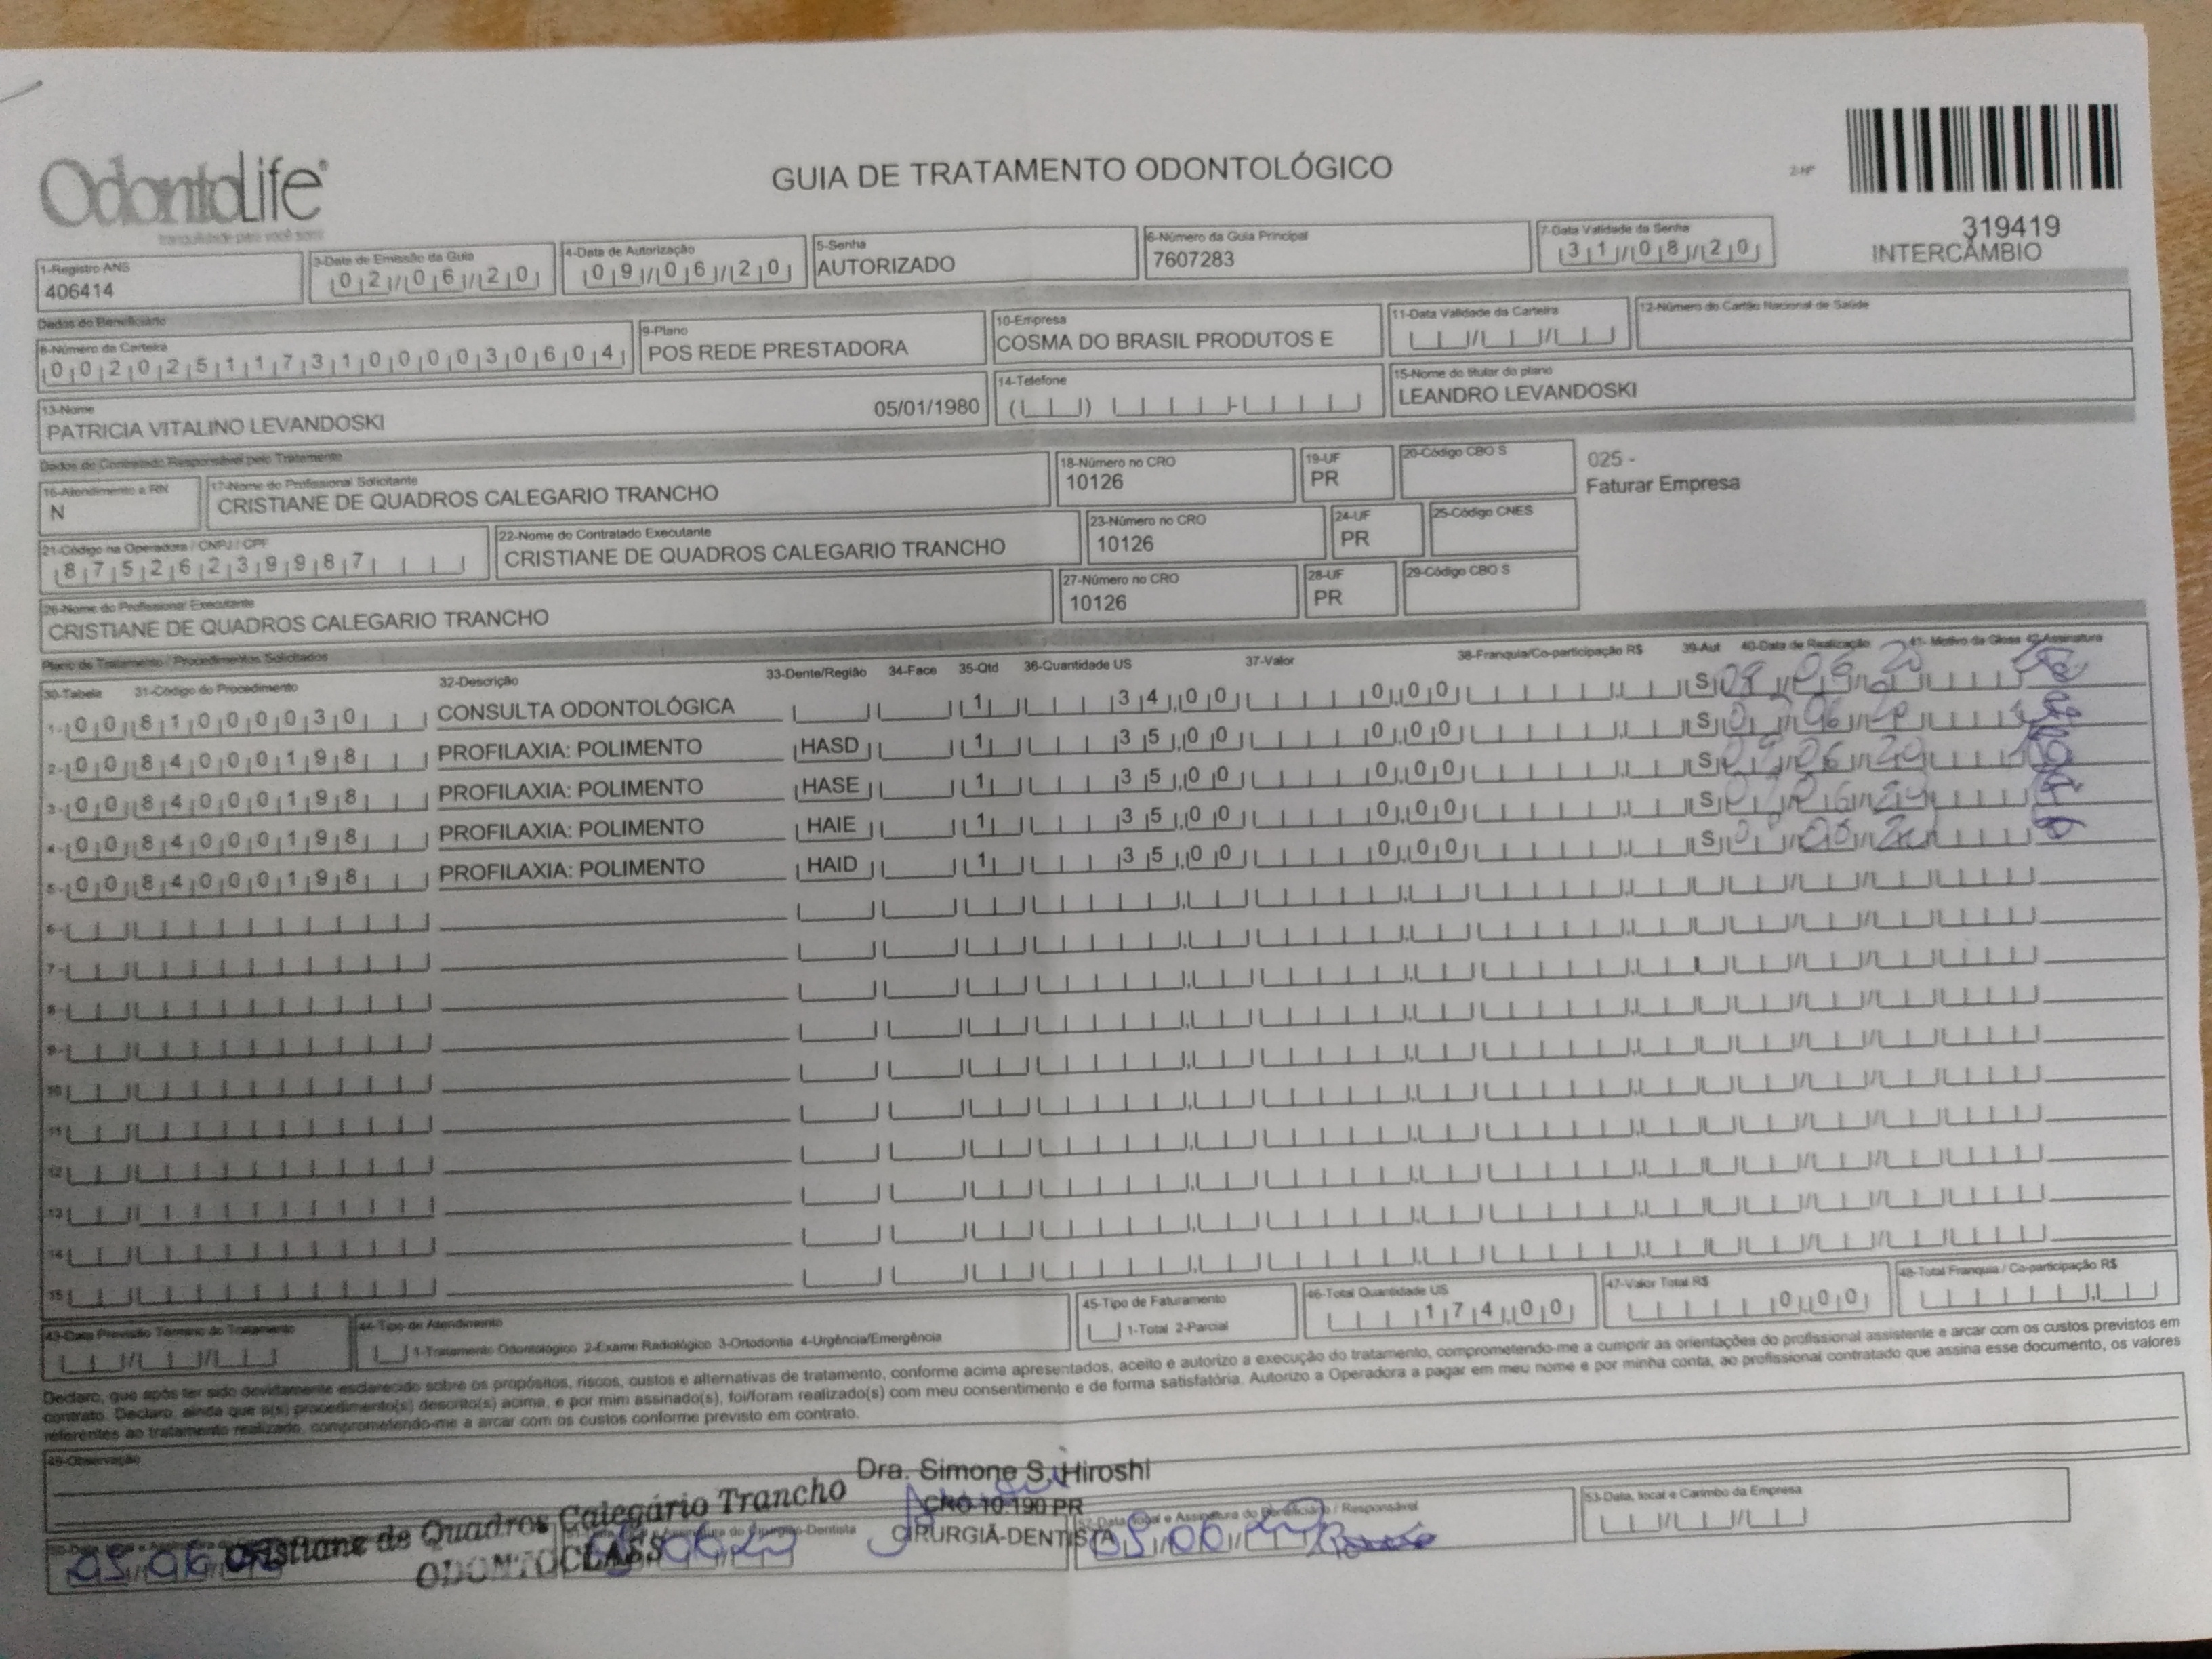 OdontoLife®
tranquilidade para você sorrir
GUIA DE TRATAMENTO ODONTOLÓGICO
319419
INTERCÂMBIO
1-Registro ANS
406414
3-Data de Emissão da Guia
02/06/20
4-Data de Autorização
09/06/20
5-Senha
AUTORIZADO
6-Número da Guia Principal
7607283
7-Data Validade da Senha
31/08/20
Dados do Beneficiário
8-Número da Carteira
00202511731000030604
9-Plano
POS REDE PRESTADORA
10-Empresa
COSMA DO BRASIL PRODUTOS E
11-Data Validade da Carteira
12-Número do Cartão Nacional de Saúde
13-Nome
PATRICIA VITALINO LEVANDOSKI 05/01/1980
14-Telefone
15-Nome do titular do plano
LEANDRO LEVANDOSKI
Dados do Contratado Responsável pelo Tratamento
16-Atendimento a RN
N
17-Nome do Profissional Solicitante
CRISTIANE DE QUADROS CALEGARIO TRANCHO
18-Número no CRO
10126
19-UF
PR
20-Código CBO S
025 -
Faturar Empresa
21-Código na Operadora / CNPJ / CPF
87526239987
22-Nome do Contratado Executante
CRISTIANE DE QUADROS CALEGARIO TRANCHO
23-Número no CRO
10126
24-UF
PR
25-Código CNES
26-Nome do Profissional Executante
CRISTIANE DE QUADROS CALEGARIO TRANCHO
27-Número no CRO
10126
28-UF
PR
29-Código CBO S
Plano de Tratamento / Procedimentos Solicitados
30-Tabela 31-Código do Procedimento 32-Descrição 33-Dente/Região 34-Face 35-Qtd 36-Quantidade US 37-Valor 38-Franquia/Co-participação R$ 39-Aut 40-Data de Realização 41- Motivo da Glosa 42-Assinatura
1- 00 81000030 CONSULTA ODONTOLÓGICA 1 34,00 0,00 S 09 06 20
2- 00 84000198 PROFILAXIA: POLIMENTO HASD 1 35,00 0,00 S 06 20
3- 00 84000198 PROFILAXIA: POLIMENTO HASE 1 35,00 0,00 S 09 06 20
4- 00 84000198 PROFILAXIA: POLIMENTO HAIE 1 35,00 0,00 S 06 20
5- 00 84000198 PROFILAXIA: POLIMENTO HAID 1 35,00 0,00 S 06 20
6-
7-
8-
9-
10
11
12
13
14
15
43-Data Previsão Término do Tratamento
44-Tipo de Atendimento
1-Tratamento Odontológico 2-Exame Radiológico 3-Ortodontia 4-Urgência/Emergência
45-Tipo de Faturamento
1-Total 2-Parcial
46-Total Quantidade US
174,00
47-Valor Total R$
0,00
48-Total Franquia / Co-participação R$
Declaro, que após ter sido devidamente esclarecido sobre os propósitos, riscos, custos e alternativas de tratamento, conforme acima apresentados, aceito e autorizo a execução do tratamento, comprometendo-me a cumprir as orientações do profissional assistente e arcar com os custos previstos em
contrato. Declaro, ainda que o(s) procedimento(s) descrito(s) acima, e por mim assinado(s), foi/foram realizado(s) com meu consentimento e de forma satisfatória. Autorizo a Operadora a pagar em meu nome e por minha conta, ao profissional contratado que assina esse documento, os valores
referentes ao tratamento realizado, comprometendo-me a arcar com os custos conforme previsto em contrato.
49-Observação
Cristiane de Quadros Calegário Trancho
ODONTOCLASS
Dra. Simone S. Hiroshi
CRO 10.190 PR
CIRURGIÃ-DENTISTA
52-Data, local e Assinatura do Beneficiário / Responsável
53-Data, local e Carimbo da Empresa